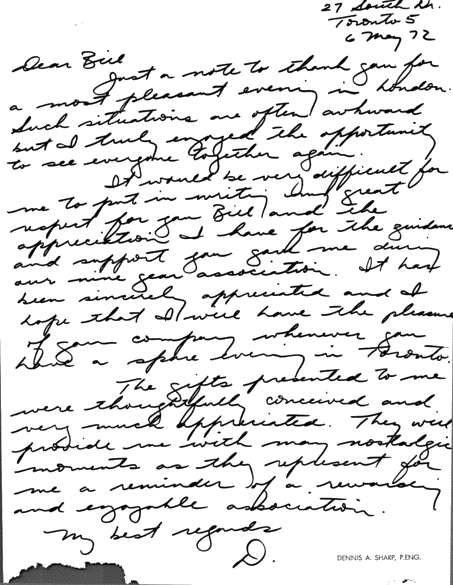 27 South Dr.
Toronto 5
6 May 72
Dear Bill
Just a note to thank you for
a most pleasant evening in London.
Such situations are often awkward
but I truly enjoyed the opportunity
to see everyone together again.
It would be very difficult for
me to put in writing my great
respect for you Bill and the
appreciation I have for the guidance
and support you gave me during
our nine year association. It has
been sincerely appreciated and I
hope that I will have the pleasure
of your company whenever you
have a spare evening in Toronto.
The gifts presented to me
were thoughtfully conceived and
very much appreciated. They will
provide me with many nostalgic
moments as they represent for
me a reminder of a rewarding
and enjoyable association.
My best regards
D.
DENNIS A. SHARP, P.ENG.